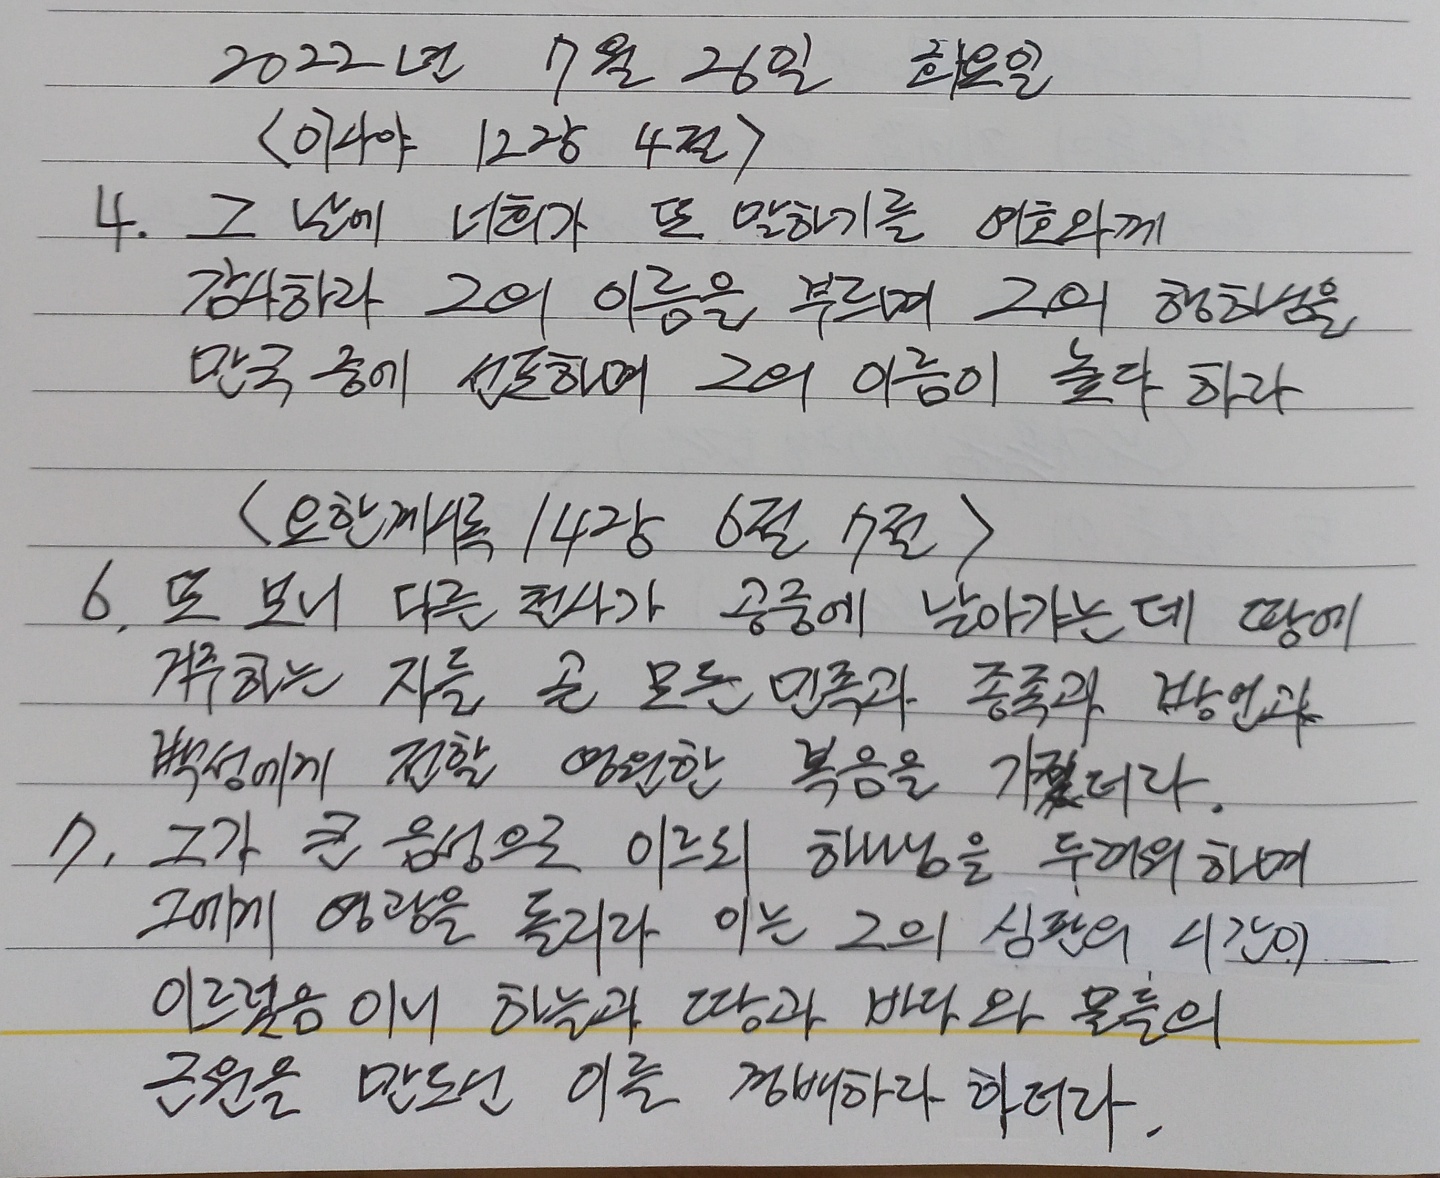 2022년 7월 26일 화요일
<이사야 12장 4절>
4. 그 날에 너희가 또 말하기를 여호와께
감사하라 그의 이름을 부르며 그의 행하심을
만국 중에 선포하며 그의 이름이 높다 하라
<요한계시록 14장 6절 7절>
6. 또 보니 다른 천사가 공중에 날아가는데 땅에
거주하는 자들 곧 모든 민족과 종족과 방언과
백성에게 전할 영원한 복음을 가졌더라.
7. 그가 큰 음성으로 이르되 하나님을 두려워하며
그에게 영광을 돌리라 이는 그의 심판의 시간이
이르렀음이니 하늘과 땅과 바다와 물들의
근원을 만드신 이를 경배하라 하더라.